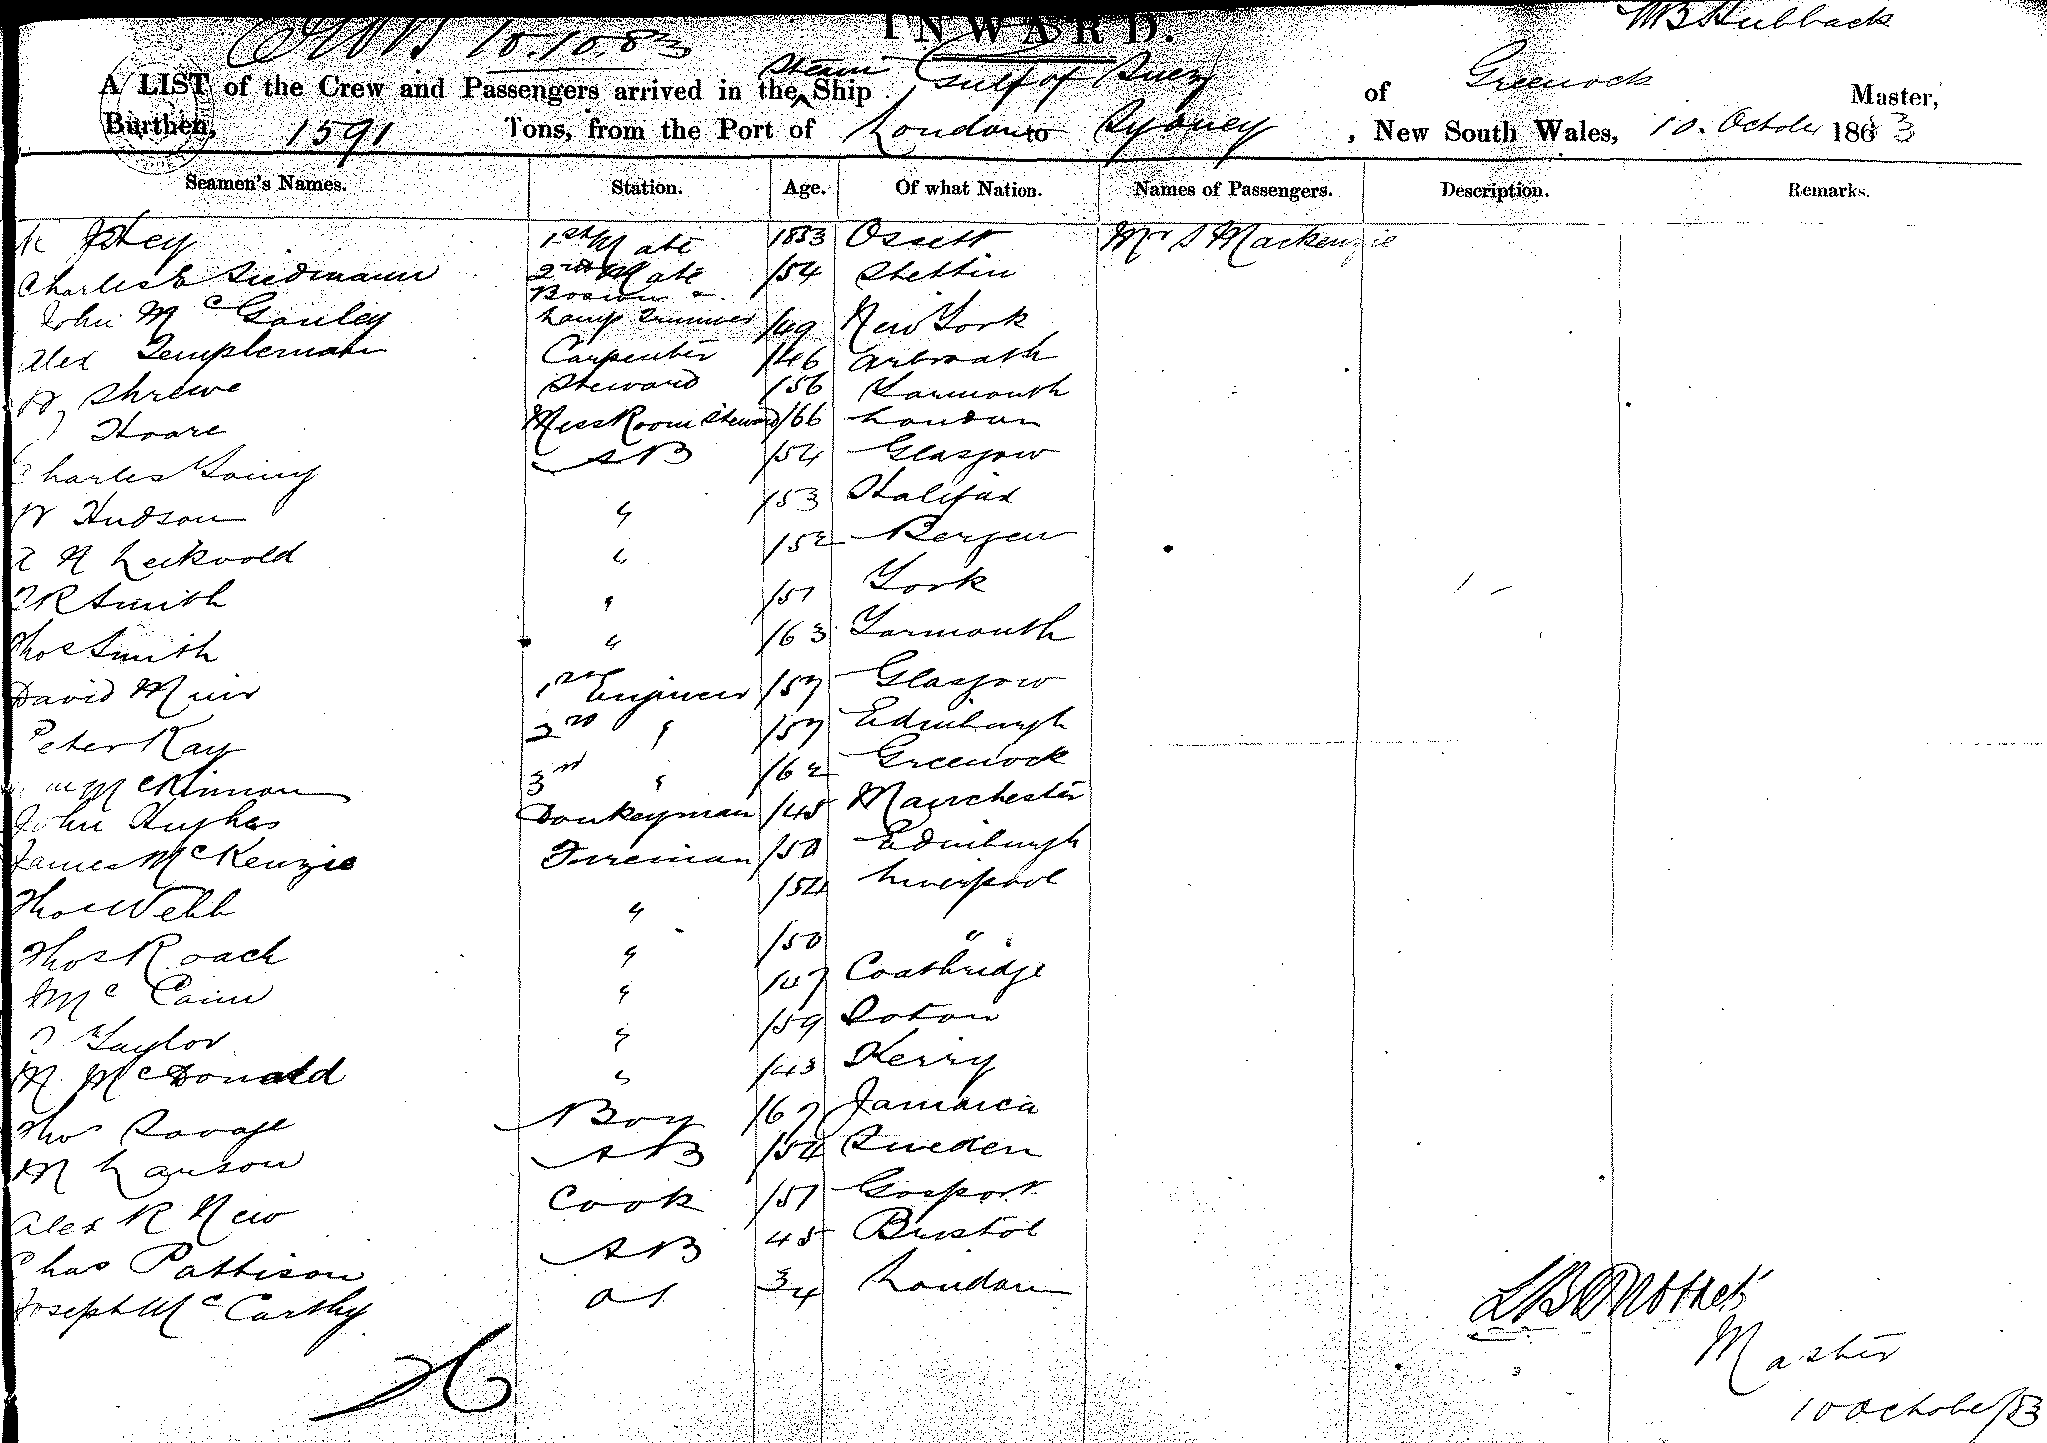 10.10.83
INWARD.
WB Hubback
A LIST of the Crew and Passengers arrived in the Steam Ship Gulf of Suez of Greenock Master,
Burthen, 1591 Tons, from the Port of London to Sydney, New South Wales, 10. October 1883
Seamen's Names. Station. Age. Of what Nation. Names of Passengers. Description. Remarks.
1st Mate 1853 Ossett Mr S Mackenzie
Charles E Siedmann 2nd Mate /54 Stettin
John McGauley Bosun & Lamp Trimmer /49 New York
Alex Templeman Carpenter /46 Arbroath
Shrewe Steward /56 Yarmouth
Hoare Mess Room Steward /66 London
Charles Young AB /54 Glasgow
W Hudson " /53 Halifax
N Leikvold " /52 Bergen
R Smith " /51 York
Thos Smith " /63 Yarmouth
David Muir 1st Engineer /57 Glasgow
Peter Kay 2nd " /57 Edinburgh
McKinnon 3rd " /62 Greenock
John Hughes Donkeyman /45 Manchester
James McKenzie Fireman /50 Edinburgh
Thos Webb " /54 Liverpool
Thos Roach " /50 "
Mc Cann " /57 Coatbridge
Taylor " /59 Soton
M. McDonald " /43 Kerry
Thos Savage Boy /67 Jamaica
M Larson AB /54 Sweden
Alex R New Cook /51 Gosport
Chas Pattison AB 45 Bristol
Joseph McCarthy OS 34 London
Master
10 October/83